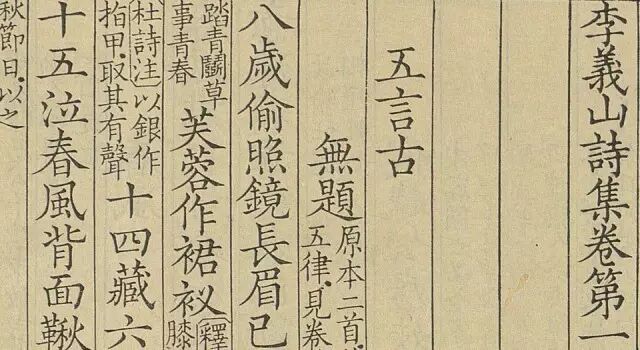 李義山詩集卷第一
五言古
無題原本二首五律見卷
八歲偷照鏡長眉已
踏青鬭草事青春芙蓉作裙衩釋膝
杜詩注以銀作指甲取其有聲十四藏六
十五泣春風背面鞦
秋節日以之